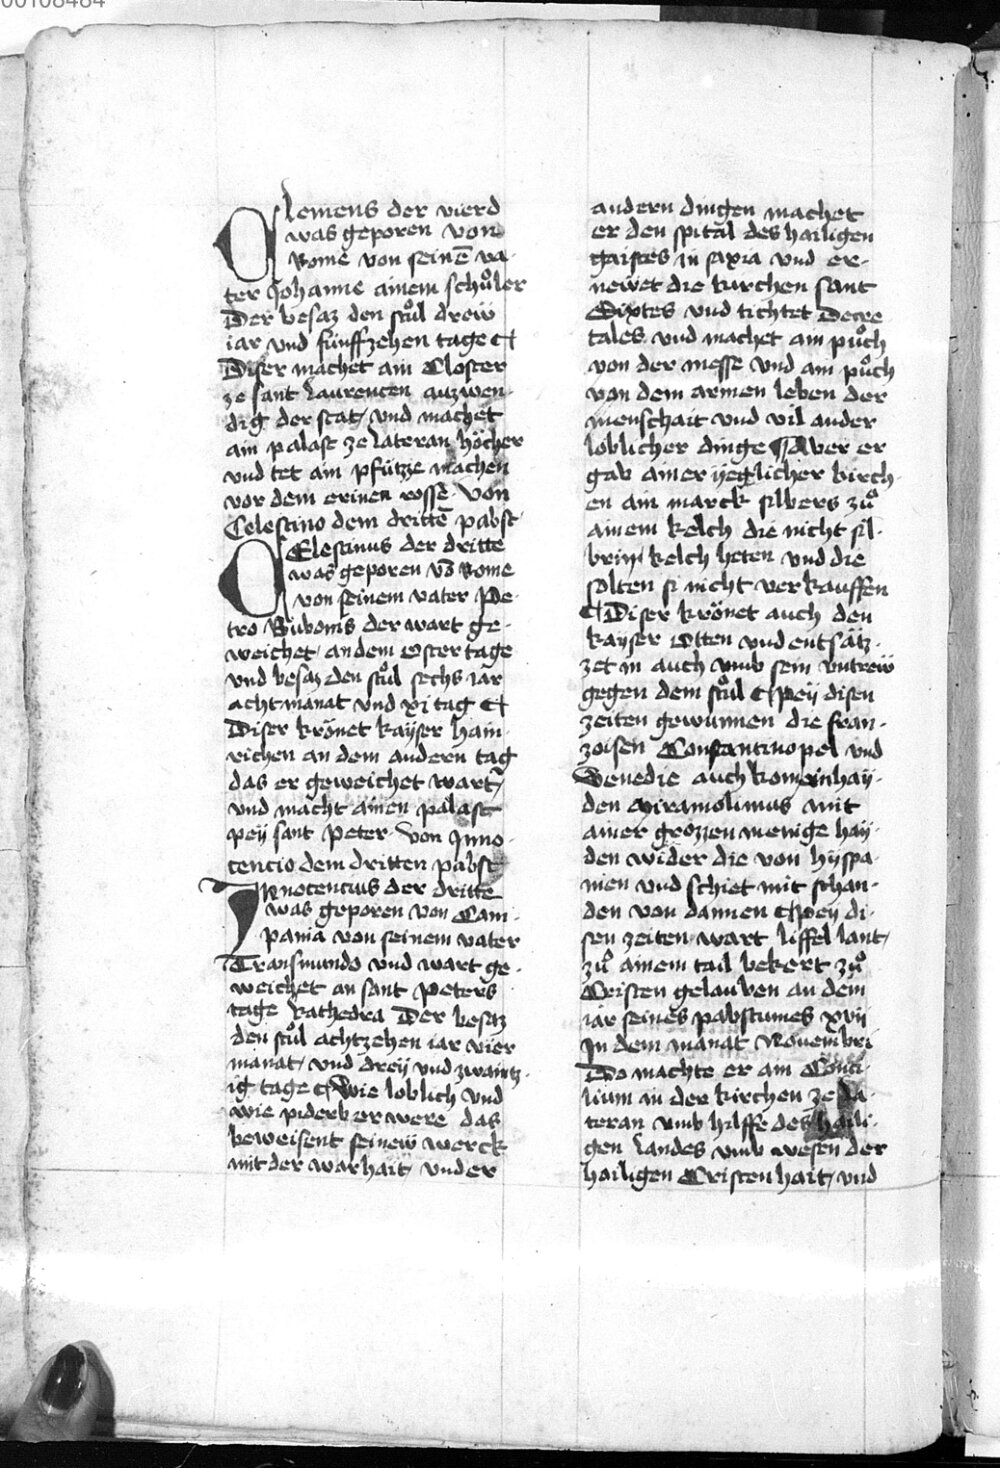 00108484
Clemens der vierd
was geporen von
Rome von seinē va-
ter Johanne ainem schůler
Der besaz den stůl drew
iar vnd fünffzehen tage
Diser machet ain Closter
ze sant Laurencen auzwen-
dig der stat vnd machet
ain palast ze lateran höcher
vnd tet ain pfütze machen
vor dem erinen rosse. Von
Celestino dem drittē pabst
Celestinus der dritte
was geporen vō Rome
von seinem vater Pe-
tro Bubonis der wart ge-
weichet an dem Ostertage
vnd besaz den stůl sechs iar
acht manat vnd xi tag
Diser krönet kayser hain-
richen an dem andern tag
das er geweichet wart
vnd macht ainen palast
pey sant Peter. Von Inno-
cencio dem dritten pabst
Innocencius der dritte
was geporen von Cam-
pania von seinem vater
Transmundo vnd wart ge-
weichet an sant Peters
tage kathedra Der besaz
den stůl achtzehen iar vier
manat vnd drey vnd zwaintz-
ig tage Wie loblich vnd
wie piderb er were das
beweisent seinew werck
mit der warhait vnder
andern dingen machet
er den spital des hailigen
gaistes in saxia vnd er-
newet die kirchen sant
Sixtes vnd tichtet Decre
tales vnd machet ain půch
von der messe vnd ain půch
von dem armen leben der
menschait vnd vil ander
loblicher dinge Aber er
gab ainer yeglicher kirch-
en ain marck silbers zů
ainem kelch die nicht sil-
brin kelch heten vnd die
solten si nicht verkauffen
Diser krönet auch den
kayser Otten vnd entsätz-
zet in auch vmb sein vntrew
gegen dem stůl Pey disen
zeiten gewunnen die fran-
zoisen Constantinopel vnd
Venedie auch kom ein hay-
den Miramolimus mit
ainer grozzen menige hay-
den wider die von hyspa-
nien vnd schiet mit schan-
den von dannen Pey di-
sen zeiten wart liffellant
zů ainem tail bekert zů
Cristen gelauben an dem
iar seines pabstumes xvii
In dem manat Nouembri
Do machte er ain Conci-
lium in der kirchen ze La-
teran vmb hilffe des haili-
gen landes vmb wesen der
hailigen Cristenhait vnd